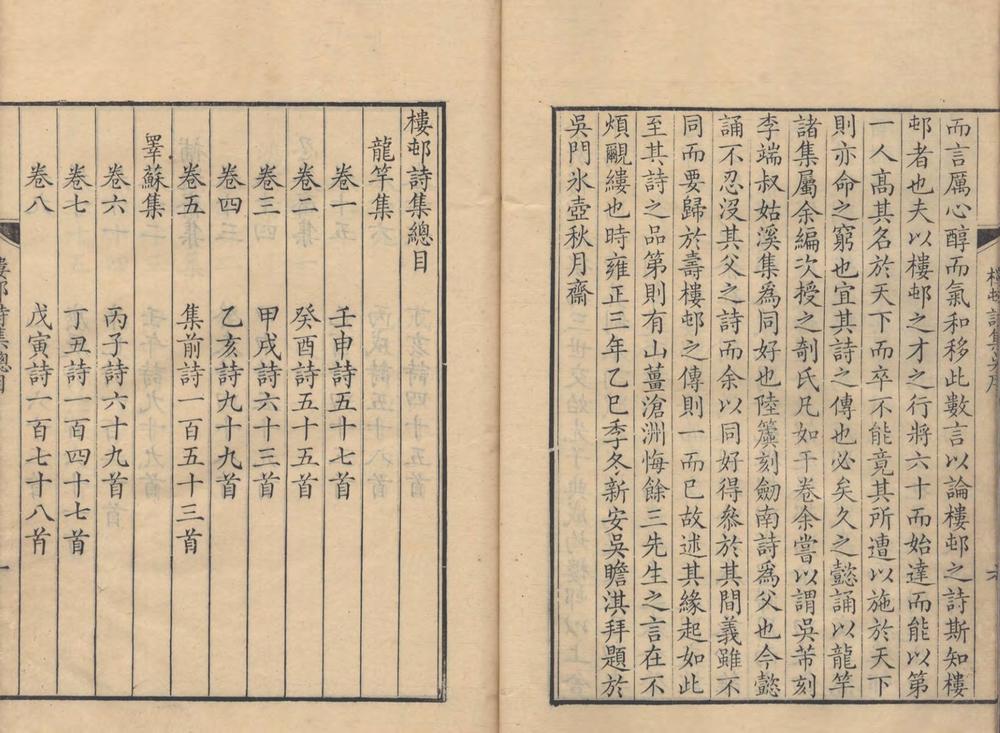 而言厲心醇而氣和移此數言以論樓邨之詩斯知樓
邨者也夫以樓邨之才之行將六十而始達而能以第
一人高其名於天下而卒不能竟其所遭以施於天下
則亦命之窮也宜其詩之傳也必矣久之懿誦以龍竿
諸集屬余編次授之剞氏凡如干卷余嘗以謂吳芾刻
李端叔姑溪集為同好也陸籑刻劒南詩為父也今懿
誦不忍沒其父之詩而余以同好得叅於其間義雖不
同而要歸於壽樓邨之傳則一而已故述其緣起如此
至其詩之品第則有山薑滄洲悔餘三先生之言在不
煩覼縷也時雍正三年乙巳季冬新安吳瞻淇拜題於
吳門氷壺秋月齋
樓邨詩集總目
龍竿集
卷一 壬申詩五十七首
卷二 癸酉詩五十五首
卷三 甲戌詩六十三首
卷四 乙亥詩九十九首
卷五 集前詩一百五十三首
睪蘇集
卷六 丙子詩六十九首
卷七 丁丑詩一百四十七首
卷八 戊寅詩一百七十八首
樓邨詩集總目
一